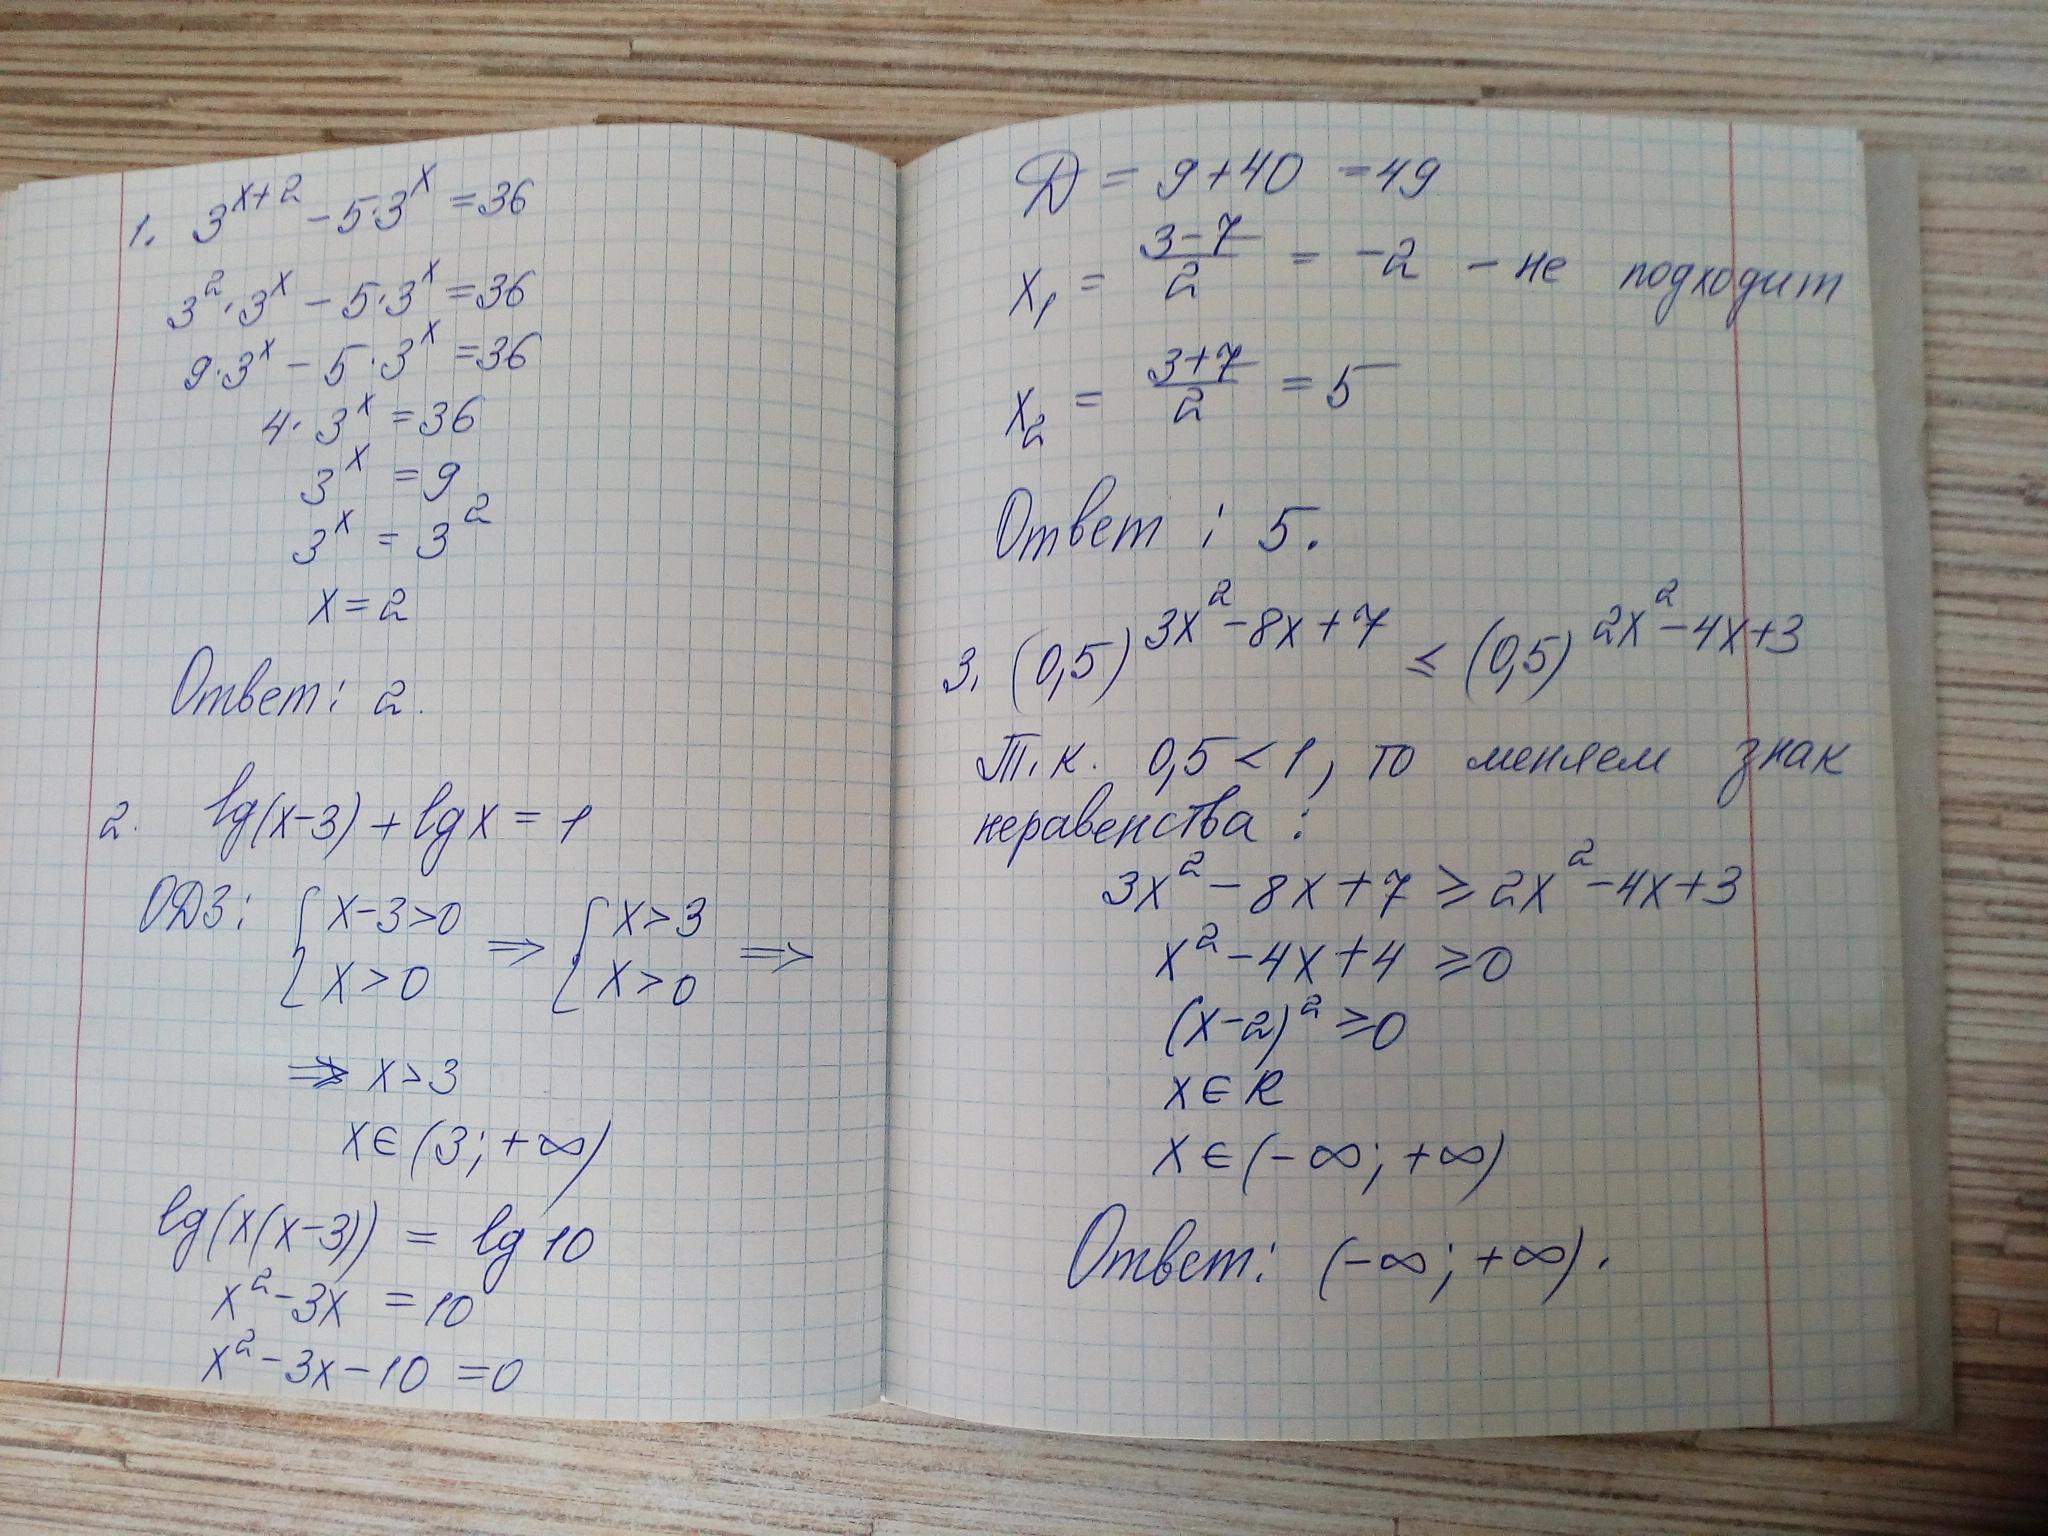 1. 3^{x+2} - 5·3^x = 36
3^2·3^x - 5·3^x = 36
9·3^x - 5·3^x = 36
4·3^x = 36
3^x = 9
3^x = 3^2
x = 2
Ответ: 2.
2. lg(x-3) + lg x = 1
ОДЗ: { x-3>0 ⇒ { x>3 ⇒
x>0 x>0
⇒ x>3
x∈(3; +∞)
lg(x(x-3)) = lg 10
x² - 3x = 10
x² - 3x - 10 = 0
D = 9+40 = 49
x₁ = (3-7)/2 = -2 - не подходит
x₂ = (3+7)/2 = 5
Ответ: 5.
3. (0,5)^{3x²-8x+7} ≤ (0,5)^{2x²-4x+3}
Т.к. 0,5<1, то меняем знак
неравенства:
3x² - 8x + 7 ≥ 2x² - 4x + 3
x² - 4x + 4 ≥ 0
(x-2)² ≥ 0
x∈R
x∈(-∞; +∞)
Ответ: (-∞; +∞).